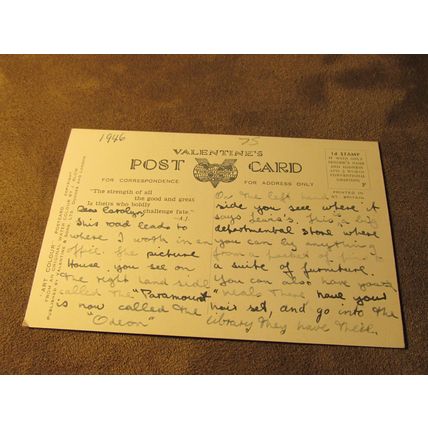 1946
75
VALENTINE'S
POST CARD
FOR CORRESPONDENCE
FOR ADDRESS ONLY
1d STAMP
IF WITH ONLY
SENDER'S NAME
AND ADDRESS
PRINTED IN
GT. BRITAIN.
"The strength of all
the good and great
Is theirs who boldly
challenge fate."
"ART COLOUR"
Dear Carolyn,
This road leads to
where I work in an
office. The picture
House, you see on
the right hand side
called the "Paramount"
is now called the
"Odeon"
On the left hand
side you see where it
says Lewis's. This is a big
departmental store where
you can by anything
from a packet of pins to
a suite of furniture.
You can also have your
meals there, have your
hair set, and go into the
library they have there.